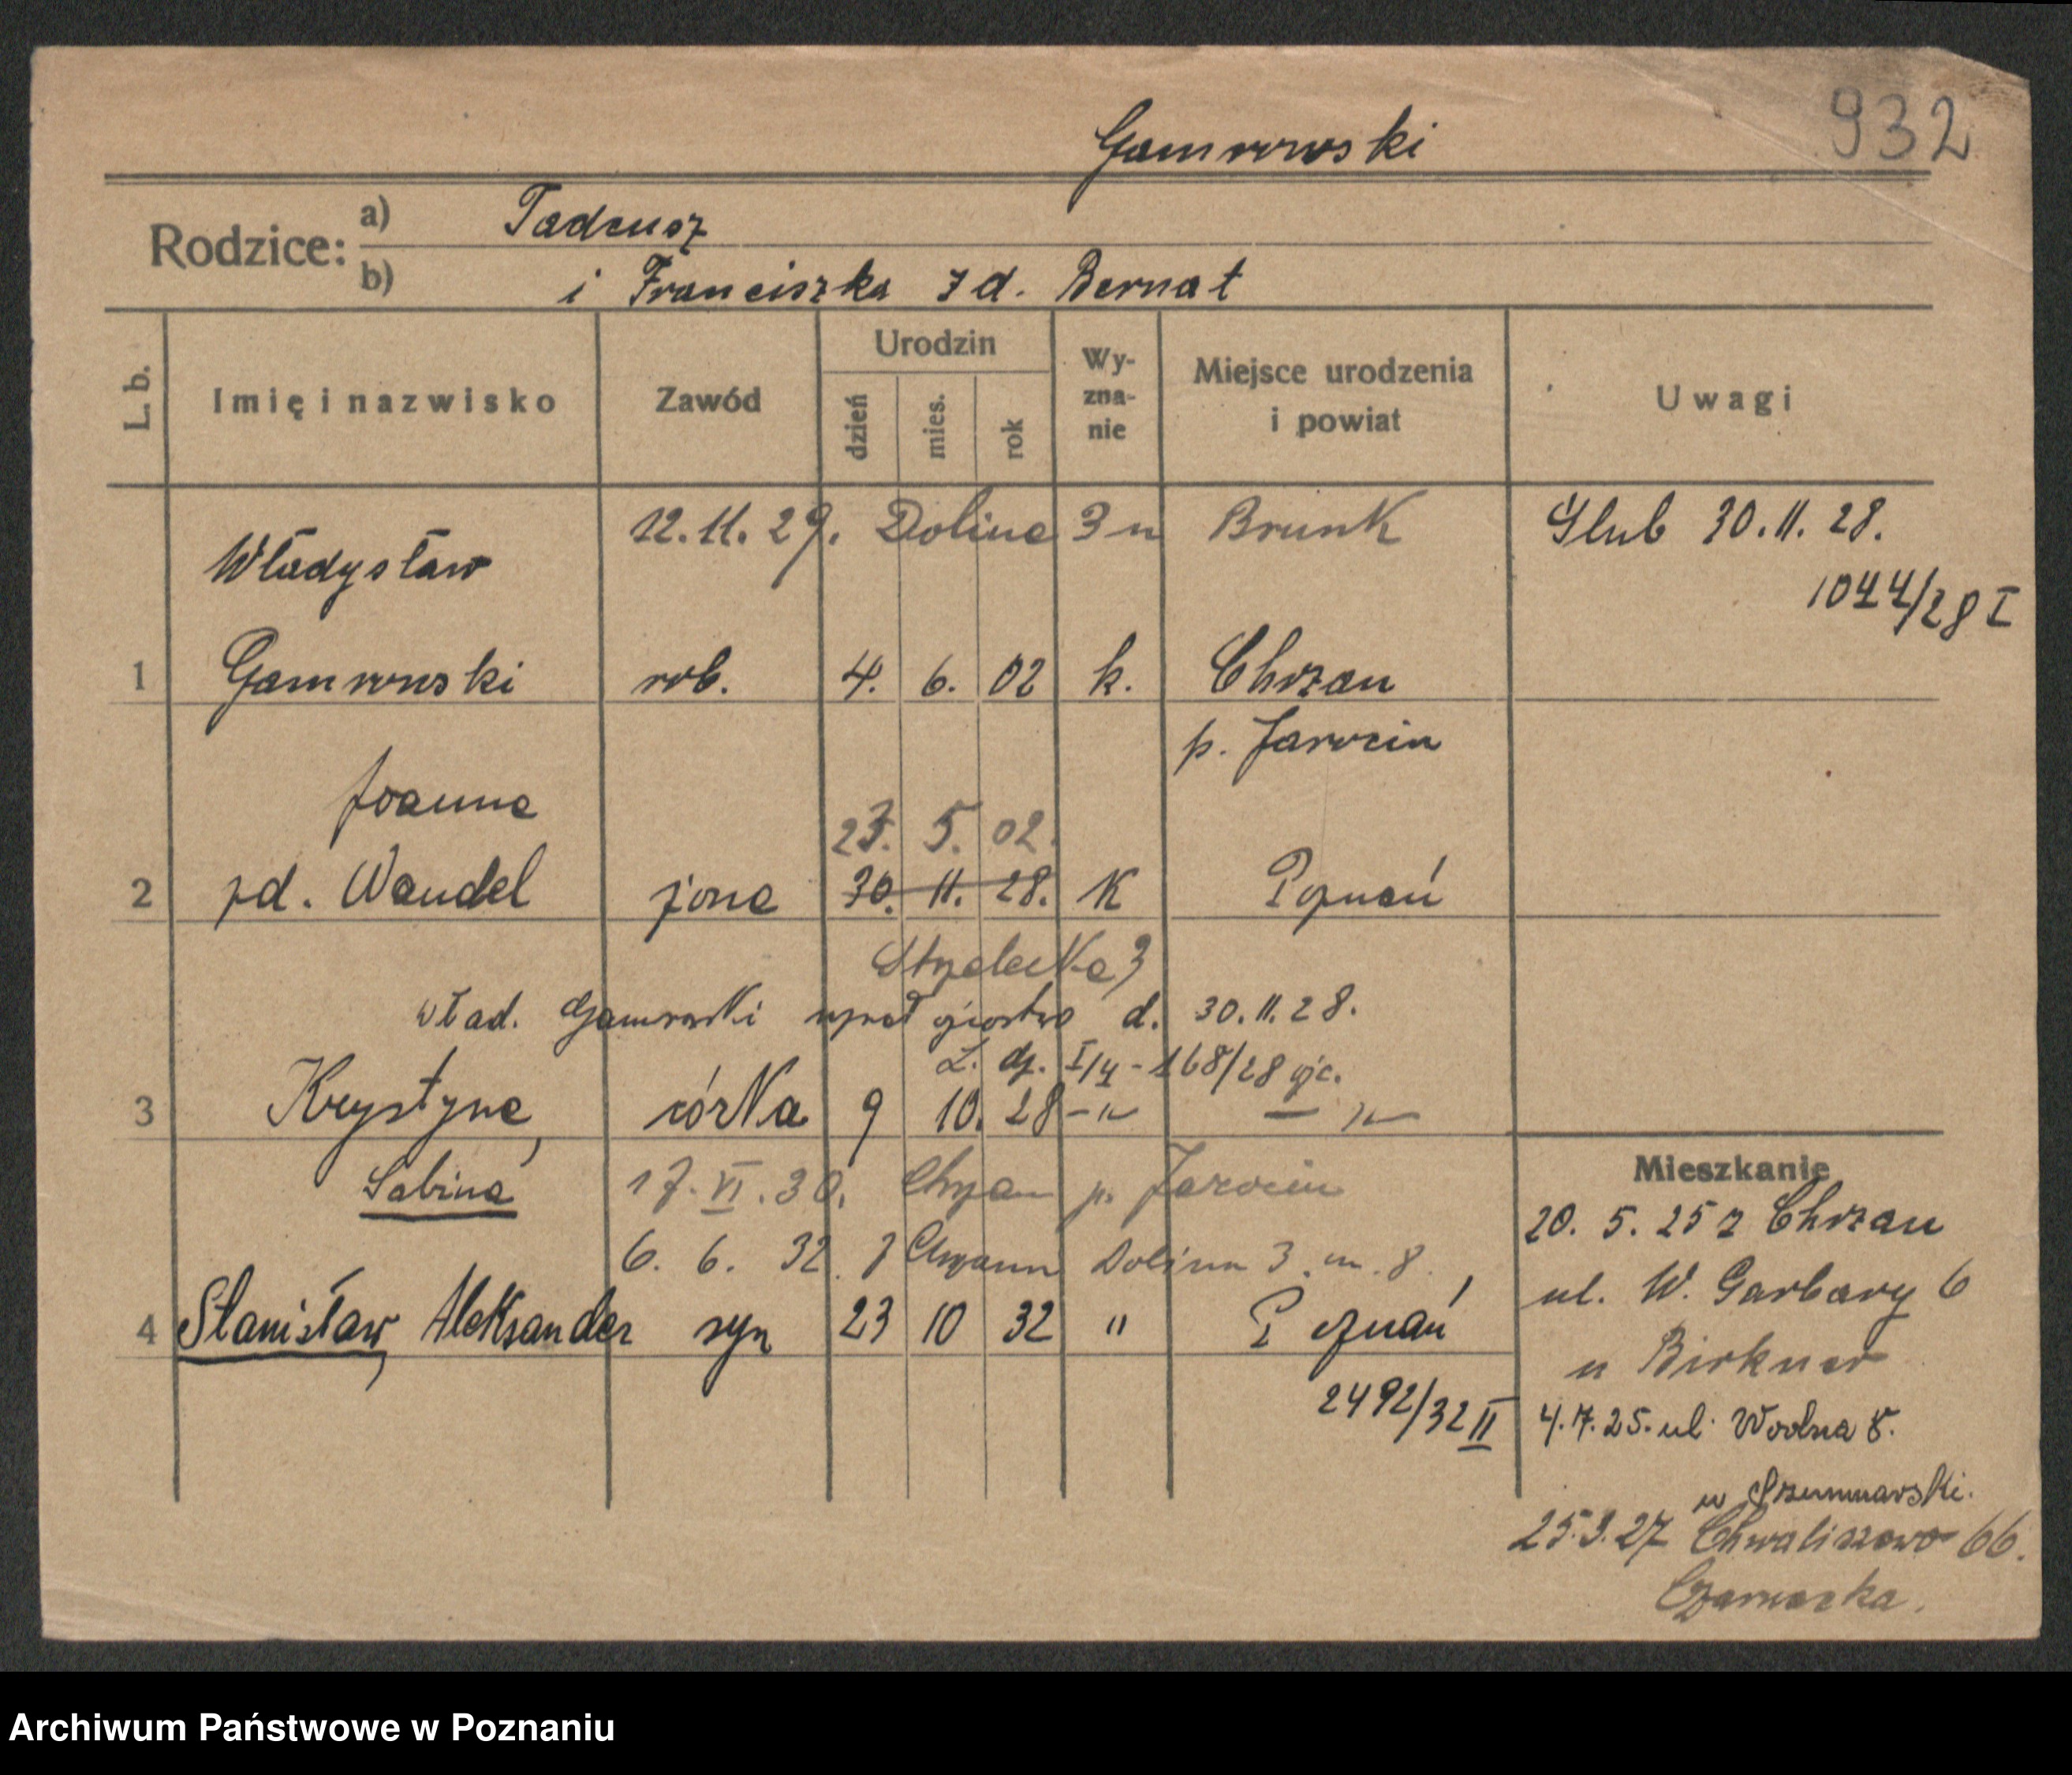 932
Gamrowski
Rodzice: a) Tadeusz
b) i Franciszka zd. Bernat
L. b.
Imię i nazwisko
Zawód
Urodzin
dzień
mies.
rok
Wy-
zna-
nie
Miejsce urodzenia
i powiat
Uwagi
12.11.29. Dolina 3 u Brunk
Ślub 30.11.28.
1044/28 I
Władysław
1 Gamrowski rob. 4. 6. 02 k. Chrzan
p. Jarocin
Joanna
23. 5. 02.
2 zd. Wandel żona 30. 11. 28. K Poznań
Strzelecka 3
Wład. Gamrowski uznał ojcostwo d. 30.11.28.
L. dz. I/4 - 168/28 ojc.
3 Krystyna, córka 9 10. 28 -"- -"-
Sabina
17.VI.30. Chrzan p. Jarocin
6. 6. 32. z Chrzana Dolina 3. m. 8.
4 Stanisław, Aleksander syn 23 10 32 " Poznań
2492/32 II
Mieszkanie
20. 5. 25 z Chrzan
ul. W. Garbary 6
u Birkner
4.7.25. ul. Woźna 8.
25.3.27 Chwaliszewo 66.
Archiwum Państwowe w Poznaniu